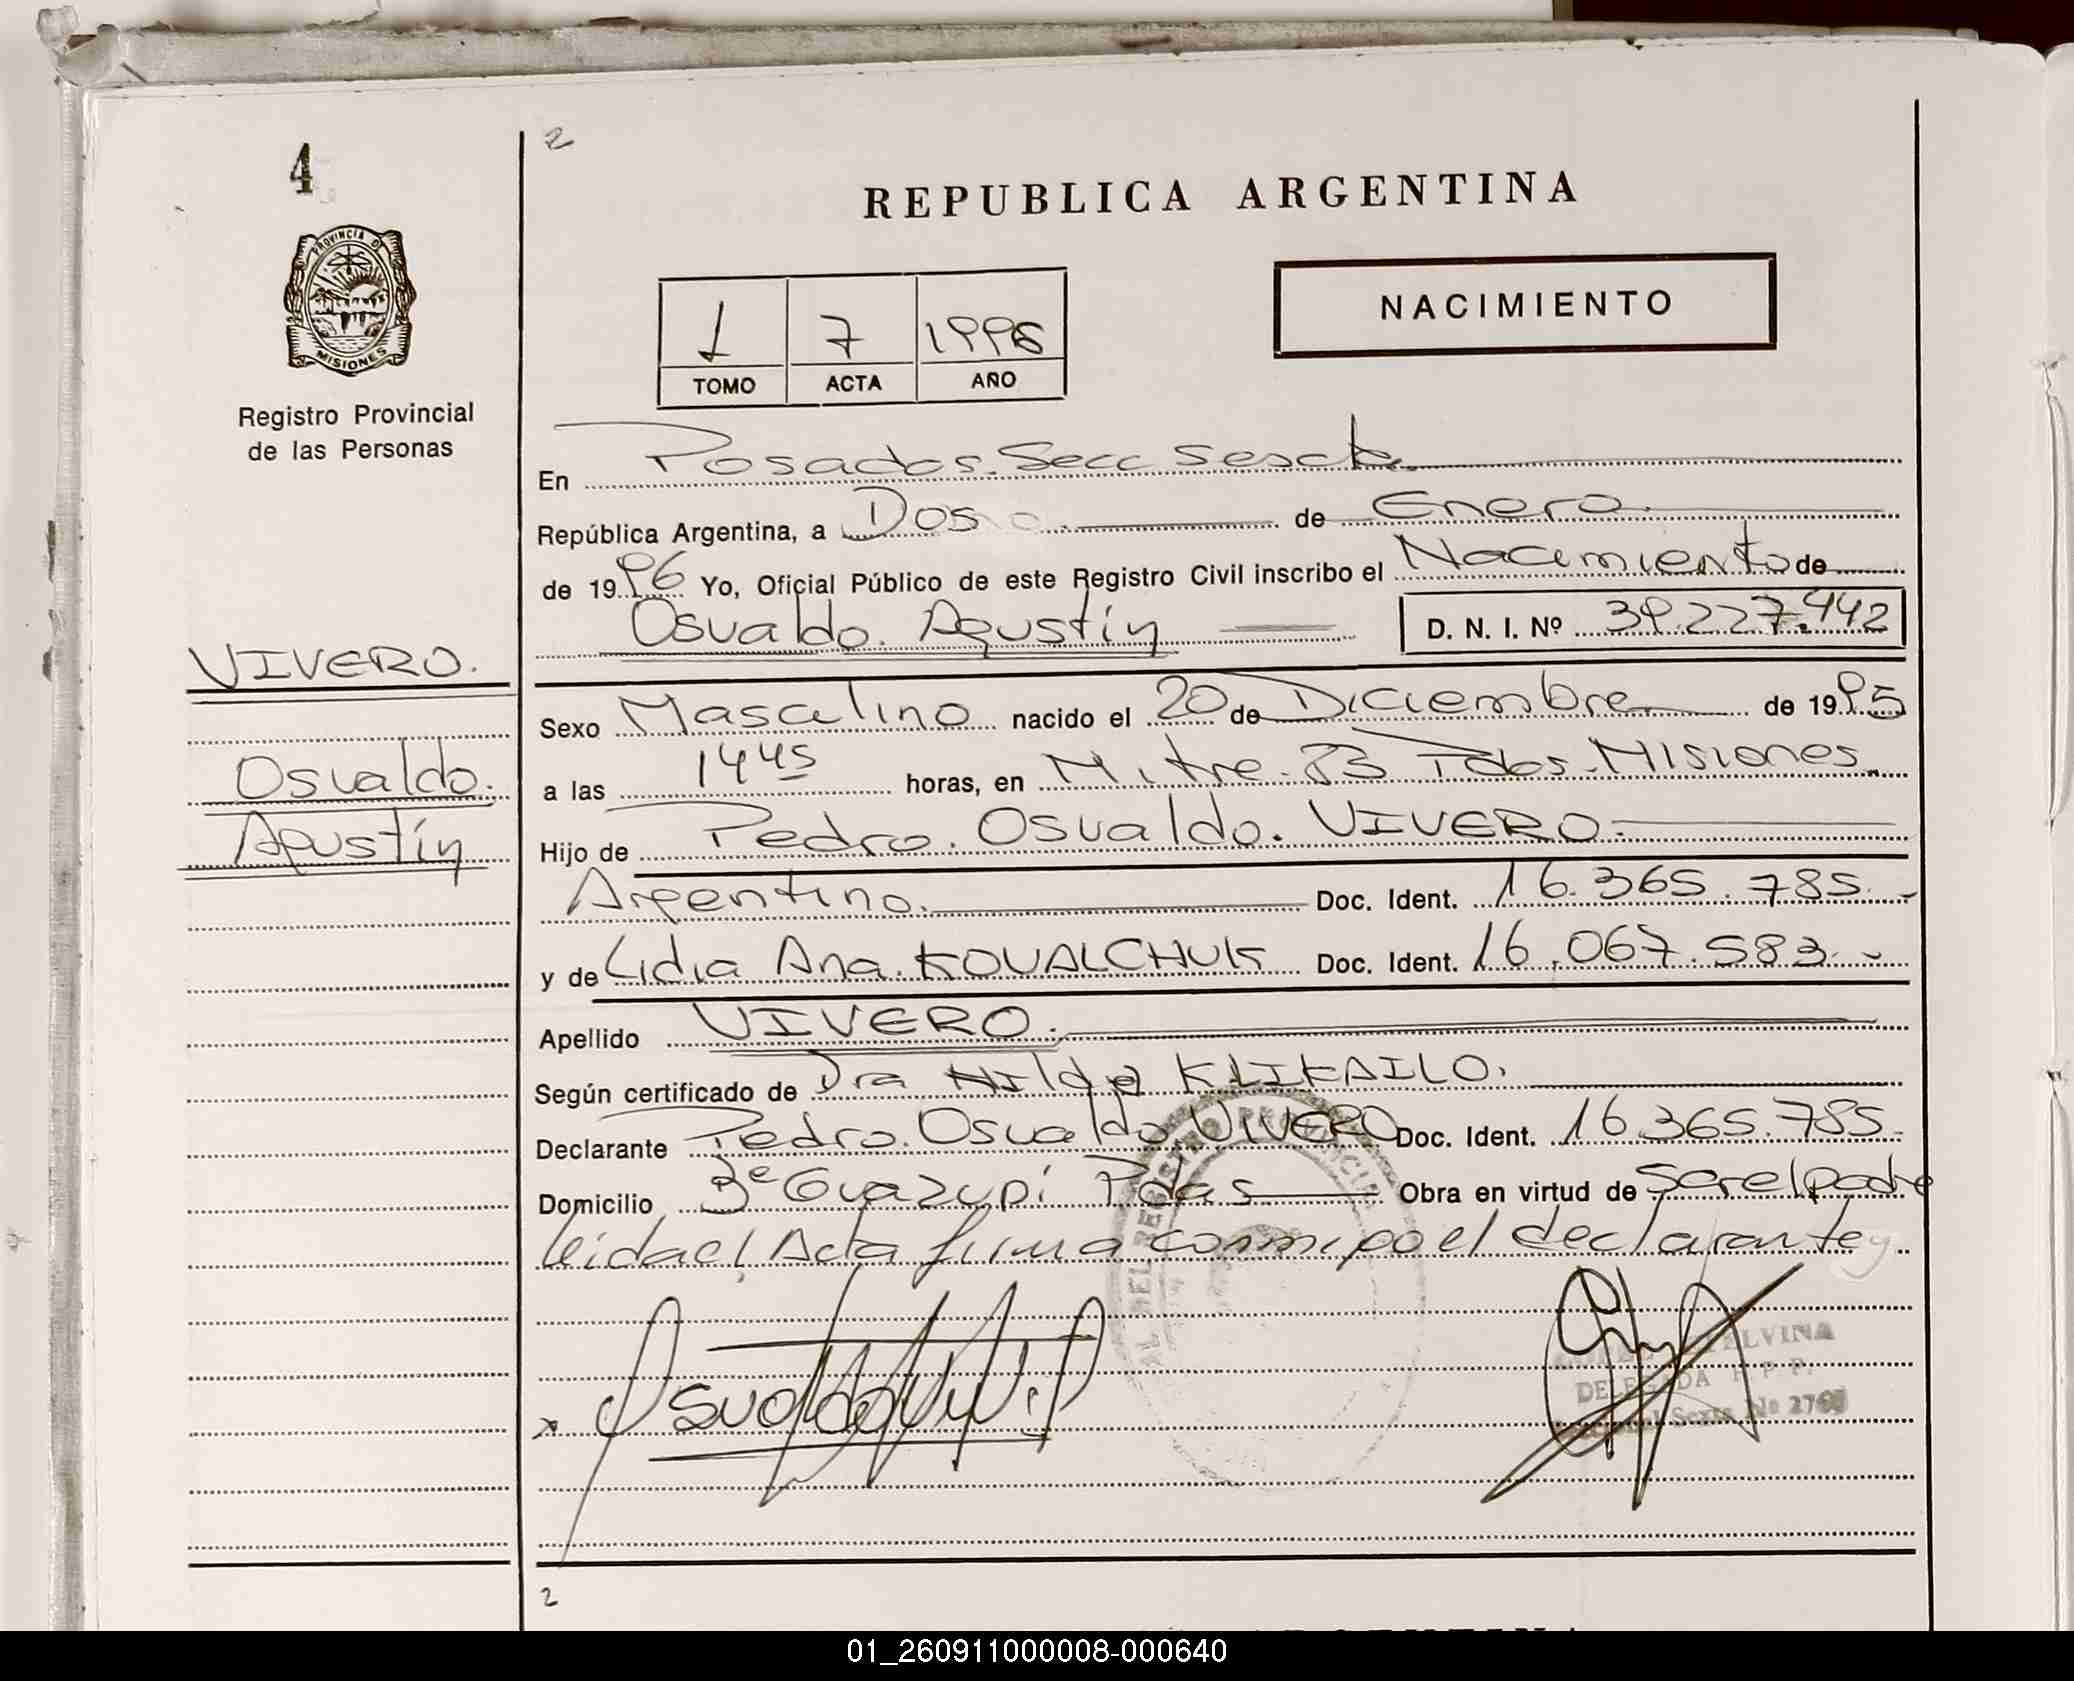 4
2
REPUBLICA ARGENTINA
PROVINCIA DE
MISIONES
Registro Provincial
de las Personas
NACIMIENTO
1 7 1996
TOMO ACTA AÑO
En Posadas. Secc Sexta.
República Argentina, a Dos de Enero.
de 1996 Yo, Oficial Público de este Registro Civil inscribo el Nacimiento de
Osvaldo. Agustín D. N. I. Nº 39.227.442
VIVERO.
Osvaldo.
Agustín
Sexo Masculino nacido el 20 de Diciembre de 1995
a las 1445 horas, en Mitre. 83 Pdas. Misiones.
Hijo de Pedro. Osvaldo. VIVERO.
Argentino. Doc. Ident. 16.365.785.
y de Lidia Ana. KOVALCHUK Doc. Ident. 16.067.583.
Apellido VIVERO.
Según certificado de Dra Hilda KLIKAILO.
Declarante Pedro. Osvaldo. VIVERO Doc. Ident. 16.365.785.
Domicilio 3º Guazupí Pdas Obra en virtud de Ser el padre
leida el Acta firma conmigo el declarante
REGISTRO PROVINCIAL
x Osvaldo
ELVINA
DELEGADA R. P. P.
Sexta Nº
2
01_260911000008-000640